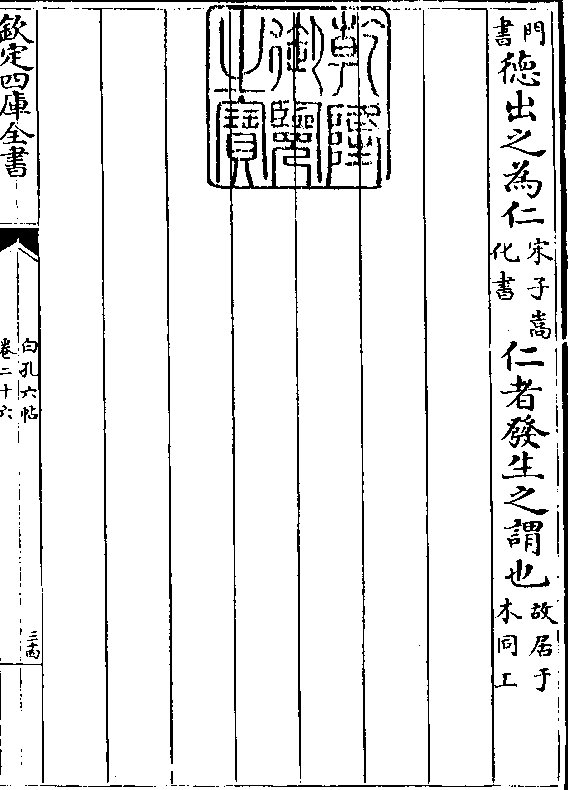 門書德出之為仁宋子嵩化書仁者發生之謂也故居于木同上
乾隆御覽之寶
欽定四庫全書
白孔六帖
卷二十六
三十四